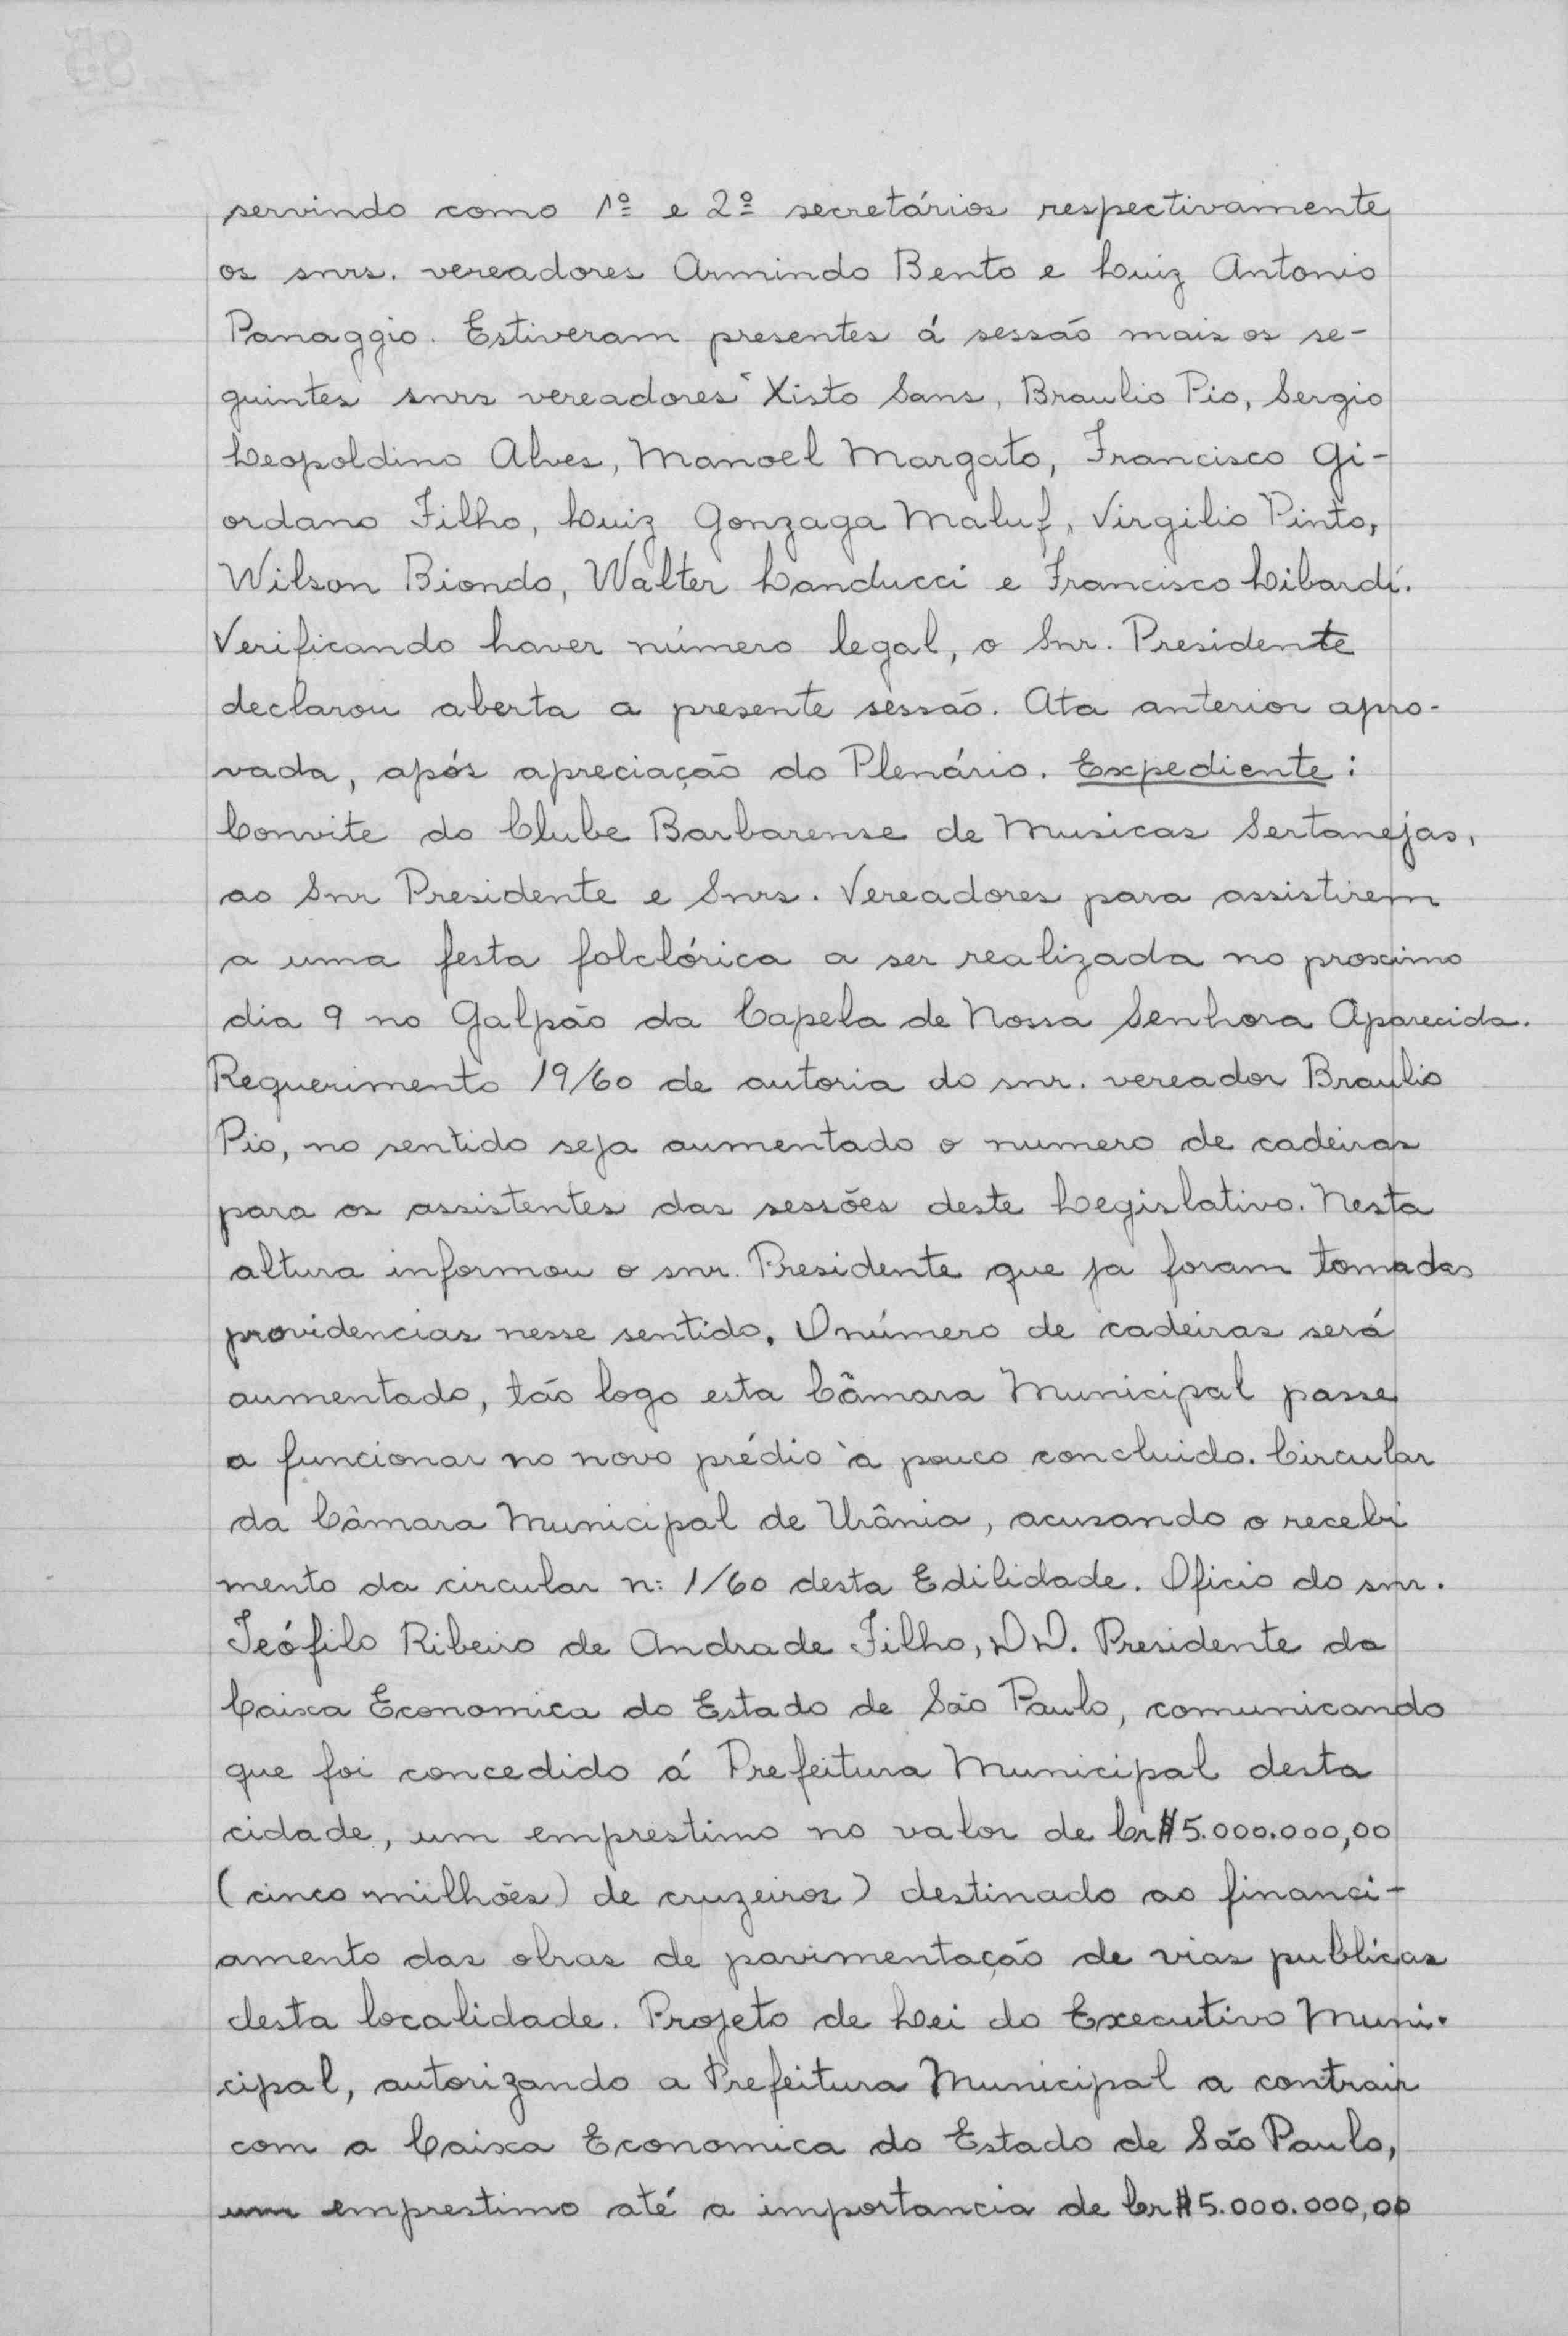 servindo como 1º e 2º secretários respectivamente
os snrs. vereadores Armindo Bento e Luiz Antonio
Panaggio. Estiveram presentes á sessão mais os se-
guintes snrs vereadores Xisto Sans, Braulio Pio, Sergio
Leopoldino Alves, Manoel Margato, Francisco Gi-
ordano Filho, Luiz Gonzaga Maluf, Virgilio Pinto,
Wilson Biondo, Walter Landucci e Francisco Libardi.
Verificando haver número legal, o Snr. Presidente
declarou aberta a presente sessão. Ata anterior apro-
vada, após apreciação do Plenário. Expediente:
Convite do Clube Barbarense de Musicas Sertanejas,
ao Snr Presidente e Snrs. Vereadores para assistirem
a uma festa folclórica a ser realizada no proximo
dia 9 no Galpão da Capela de Nossa Senhora Aparecida.
Requerimento 19/60 de autoria do snr. vereador Braulio
Pio, no sentido seja aumentado o numero de cadeiras
para os assistentes das sessões deste Legislativo. Nesta
altura informou o snr. Presidente que ja foram tomadas
providencias nesse sentido. O número de cadeiras será
aumentado, tão logo esta Câmara Municipal passe
a funcionar no novo prédio à pouco concluido. Circular
da Câmara Municipal de Urânia, acusando o recebi
mento da circular n: 1/60 desta Edilidade. Oficio do snr.
Teófilo Ribeiro de Andrade Filho, DD. Presidente da
Caixa Economica do Estado de São Paulo, comunicando
que foi concedido á Prefeitura Municipal desta
cidade, um emprestimo no valor de Cr$5.000.000,00
(cinco milhões) de cruzeiros) destinado ao financi-
amento das obras de pavimentação de vias publicas
desta localidade. Projeto de Lei do Executivo Muni-
cipal, autorizando a Prefeitura Municipal a contrair
com a Caixa Economica do Estado de São Paulo,
um emprestimo até a importancia de Cr$5.000.000,00